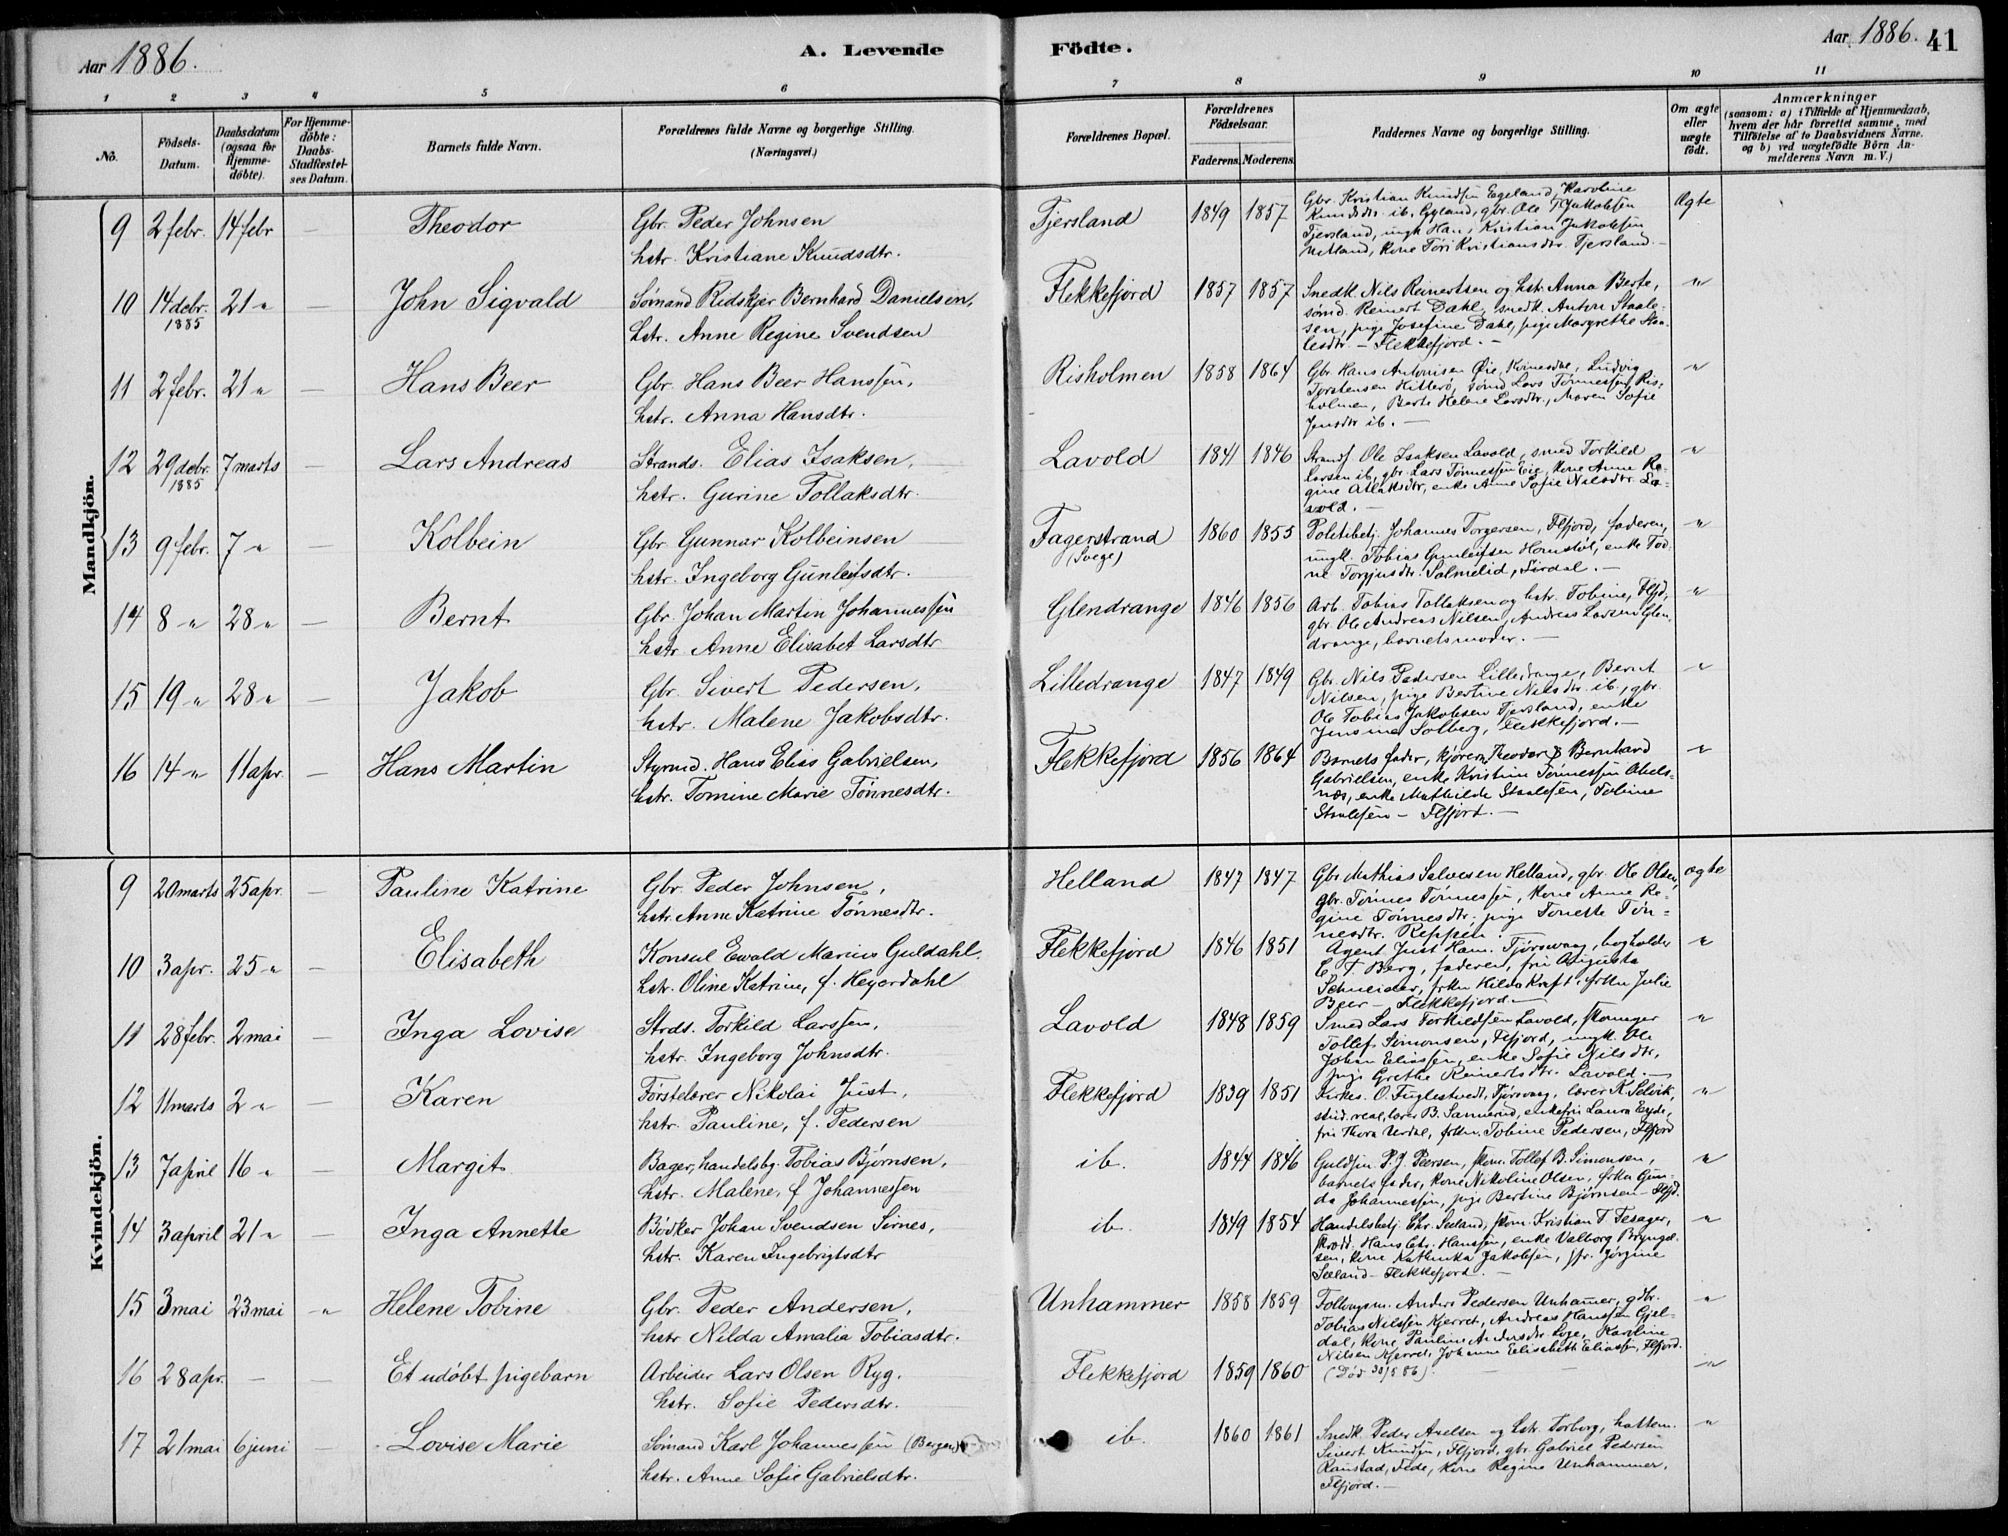 Aar 1886.
A. Levende
Födte.
Aar 1886. 41
1 2 3 4 5 6
7 8 9 10 11
No.
Födsels-
Datum.
Daabsdatum
(ogsaa for
Hjemme-
döbte).
For Hjemme-
döbte:
Daabs-
Stadfæstel-
ses Datum.
Barnets fulde Navn.
Forældrenes fulde Navne og borgerlige Stilling.
(Næringsvei.)
Forældrenes Bopæl.
Forældrenes
Födselsaar.
Faderens. Moderens.
Faddernes Navne og borgerlige Stilling.
Om ægte
eller
uægte
födt.
Anmærkninger
(saasom: a) i Tilfælde af Hjemmedaab,
hvem der har forrettet samme, med
Tilföielse af to Daabsvidners Navne.
og b) ved uægtefödte Börn An-
melderens Navn m. V.)
Mandkjön.
9 2 febr. 14 febr — Theodor
Gbr. Peder Johnsen
hstr. Kristiane Knudsdtr.
Tjersland 1849 1857
Gbr. Kristian Knudsen Egeland, Karoline
Knudsdtr. ib. Egeland, gbr. Ole T. Jakobsen
Tjersland, ungk Han, Kristian Jakobsen
Netland, kone Tøri Kristiansdtr. Tjersland. —
Ægte
10 14 debr. 1885 21 " — John Sigvald
Sømand Ridskjer Bernhard Danielsen,
hstr. Anne Regine Svendsen
Flekkefjord 1857 1857
Snedk. Nils Reinertsen og hstr. Anna Berte,
sømd. Reinert Dahl, snedk. Anton Staale-
sen, pige Josefine Dahl, pige Margrethe Staa-
lesdtr. — Flekkefjord. —
"
11 2 febr. 21 " — Hans Beer
Gbr. Hans Beer Hanssen,
hstr. Anna Hansdtr.
Risholmen 1858 1864
Gbr Hans Antonisen Øie, Kvinesdal, Ludvig
Torstensen Hitterø, sømd Lars Tønnessen Ris-
holmen, Berte Helene Larsdtr., Maren Sofie
Jensdtr ib. —
"
12 29 debr. 1885 7 marts — Lars Andreas
Strands. Elias Isaksen,
hstr. Gurine Tollaksdtr.
Lavold 1841 1846
Strands Ole Isaksen Lavold, smed Torkild
Larsen ib, gbr. Lars Tønnessen Eie, kone Anne Re-
gine Atlaksdtr, enke Anne Sofie Nilsdtr. La-
vold. —
"
13 9 febr. 7 " — Kolbein
Gbr. Gunnar Kolbeinsen
hstr. Ingeborg Gunleifsdtr.
Fagerstrand
(Svege)
1860 1855
Politibetj. Johannes Torgersen, Flfjord, faderen,
ungk. Tobias Gunleifsen Homstøl, enke Tod-
ne Torgjusdtr. Salmelid, Sirdal. —
"
14 8 " 28 " — Bernt
Gbr. Johan Martin Johannessen
hstr. Anne Elisabet Larsdtr
Glendrange 1846 1856
Arb. Tobias Tollaksen og hstr. Tobine, Flfjd,
gbr. Ole Andreas Nilsen, Andreas Larsen Glen-
drange, barnets moder. —
"
15 19 " 28 " — Jakob
Gbr. Sivert Pedersen,
hstr. Malene Jakobsdtr.
Lilledrange 1847 1849
Gbr. Nils Pedersen Lilledrange, Bernt
Nilsen, pige Bertine Nilsdtr ib., gbr.
Ole Tobias Jakobsen Tjersland, enke
Jensine Solberg, Flekkefjord. —
"
16 14 " 11 apr. — Hans Martin
Styrmd. Hans Elias Gabrielsen,
hstr. Tomine Marie Tönnesdtr.
Flekkefjord 1856 1864
Barnets fader, Theodor & Bernhard
Gabrielsen, enke Kristine Tønnessen Abels-
næs, enke Mathilde Staalesen, Tobine
Staalesen — Flfjord. —
"
Kvindekjön.
9 20 marts 25 apr. — Pauline Katrine
Gbr. Peder Johnsen,
hstr. Anne Katrine Tønnesdtr.
Helland 1847 1847
Gbr Mathias Salvesen Helland, gbr. Ole Olsen,
gbr. Tønnes Tønnessen, kone Anne Re-
gine Tønnesdtr, pige Tonette Tøn-
nesdtr. Reppen.
ægte
10 3 apr. 25 " — Elisabeth
Konsul Ewald Marius Guldahl.
hstr. Oline Katrine, f. Heyerdahl
Flekkefjord 1846 1851
Agent Just Ham. Tjørsvaag, bogholder
C. T. Berg, faderen, fru Augusta
Schneider, frkn Hilda Kraft, frkn Julie
Beer — Flekkefjord —
"
11 28 febr. 2 mai — Inga Lovise
Strds. Torkild Larssen,
hstr. Ingeborg Johnsdtr.
Lavold 1848 1859
Smed Lars Torkildsen Lavold, skomager
Tollef Simonsen, Flfjord, ungk. Ole
Johan Eliassen, enke Sofie Nilsdtr,
pige Grethe Reinertsdtr. Lavold. —
"
12 11 marts 2 " — Karen
Førstelærer Nikolai Just,
hstr. Pauline, f. Pedersen
Flekkefjord 1839 1851
Kirkes. O. Fuglestvedt, Tjørsvaag, lærer K. Selvik,
stud. real, lærer B. Sannerud, enkefru Laura Eyde,
fru Thora Urdal, frkn. Tobine Pedersen, Flfjord
"
13 7 april 16 " — Margit
Bager, handelsbg. Tobias Bjørnsen,
hstr. Malene, f Johannessen
ib. 1844 1846
Guldsm. P. J. Peersen, skom. Tollef B. Simonsen,
barnets fader, kone Nikoline Olsen, frkn Gun-
da Johannessen, pige Bertine Bjørnsen — Flfjd.
"
14 3 april 21 " — Inga Annette
Bødker Johan Svendsen Sirnes,
hstr. Karen Ingebrigtsdtr
ib. 1849 1854
Handelsbetj. Chr. Seeland, skom. Kristian T. Tesager,
skrædd. Hans Chr. Hanssen, enke Valborg Bryngel-
sen, kone Kathinka Jakobsen, jfr. Jørgine
Seeland — Flekkefjord. —
"
15 3 mai 23 mai " Helene Tobine
Gbr. Peder Andersen,
hstr Nilda Amalia Tobiasdtr.
Unhammer 1858 1859
Anders Pedersen Unhamer, gbr.
Tobias Nilssen Kjerret, Andreas Hanssen Gjel-
dal, kone Pauline Andersdtr Loge, Karoline
Nilsen Kjerret, Johanne Elisabeth Eliassen, Flfjord.
"
16 28 apr. — — Et udøbt pigebarn
Arbeider Lars Olsen Ryg,
hstr. Sofie Pedersdtr.
Flekkefjord 1859 1860
(Død 30/5 86). — —
"
17 21 mai 6 juni — Lovise Marie
Sømand Karl Johannessen (Bergen)
hstr. Anne Sofie Gabrielsdtr.
ib. 1860 1861
Snedk. Peder Axelsen og hstr. Torborg, hattem.
Sivert Knudsen, Flfjord, gbr. Gabriel Pedersen
Raustad, Fede, kone Regine Unhammer,
Flfjord. —
"